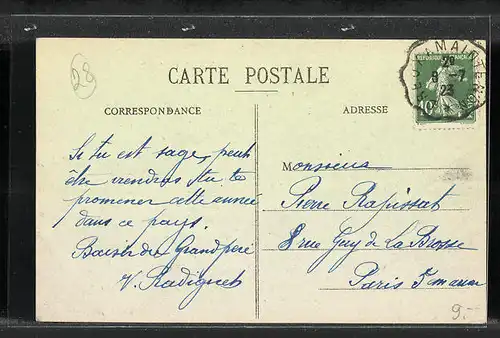 28
CARTE POSTALE
CORRESPONDANCE
ADRESSE
REPUBLIQUE FRANÇAISE
2°
8 -7
23
10c
Si tu est sage, peut
être viendras tu te
promener cette année
dans ce pays.
Baiser du Grand père
V. Radiguet
Monsieur
Pierre
8 rue Guy de La Brosse
Paris 5me
9.-